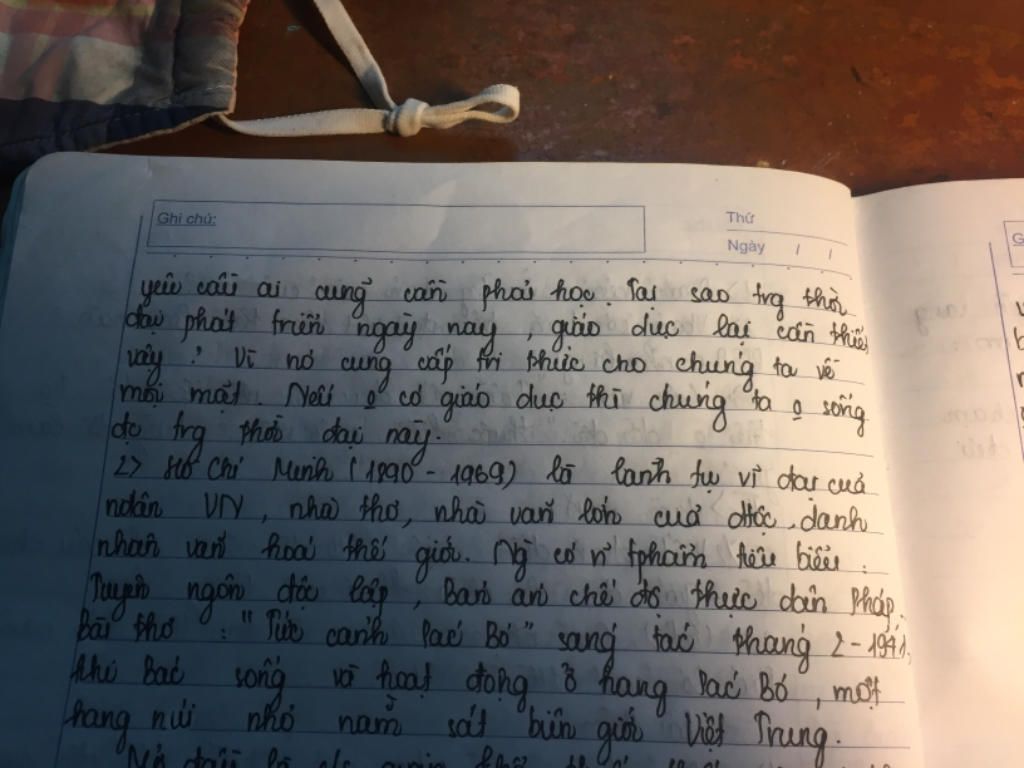 Ghi chú:
Thứ
Ngày / /
yêu cầu ai cũng cần phải học. Tại sao trg thời
đại phát triển ngày nay, giáo dục lại cần thiết
vậy? Vì nó cung cấp tri thức cho chúng ta về
mọi mặt. Nếu o có giáo dục thì chúng ta o sống
đc trg thời đại này.
2> Hồ Chí Minh (1890 - 1969) là lãnh tụ vĩ đại của
ndân VN, nhà thơ, nhà văn lớn của dtộc, danh
nhân văn hoá thế giới. Ng có n' tphẩm tiêu biểu:
Tuyên ngôn độc lập, Bản án chế độ thực dân Pháp.
Bài thơ: "Tức cảnh Pác Bó" sáng tác tháng 2-1941,
khi Bác sống và hoạt động ở hang Pác Bó, một
hang núi nhỏ nằm sát biên giới Việt Trung.